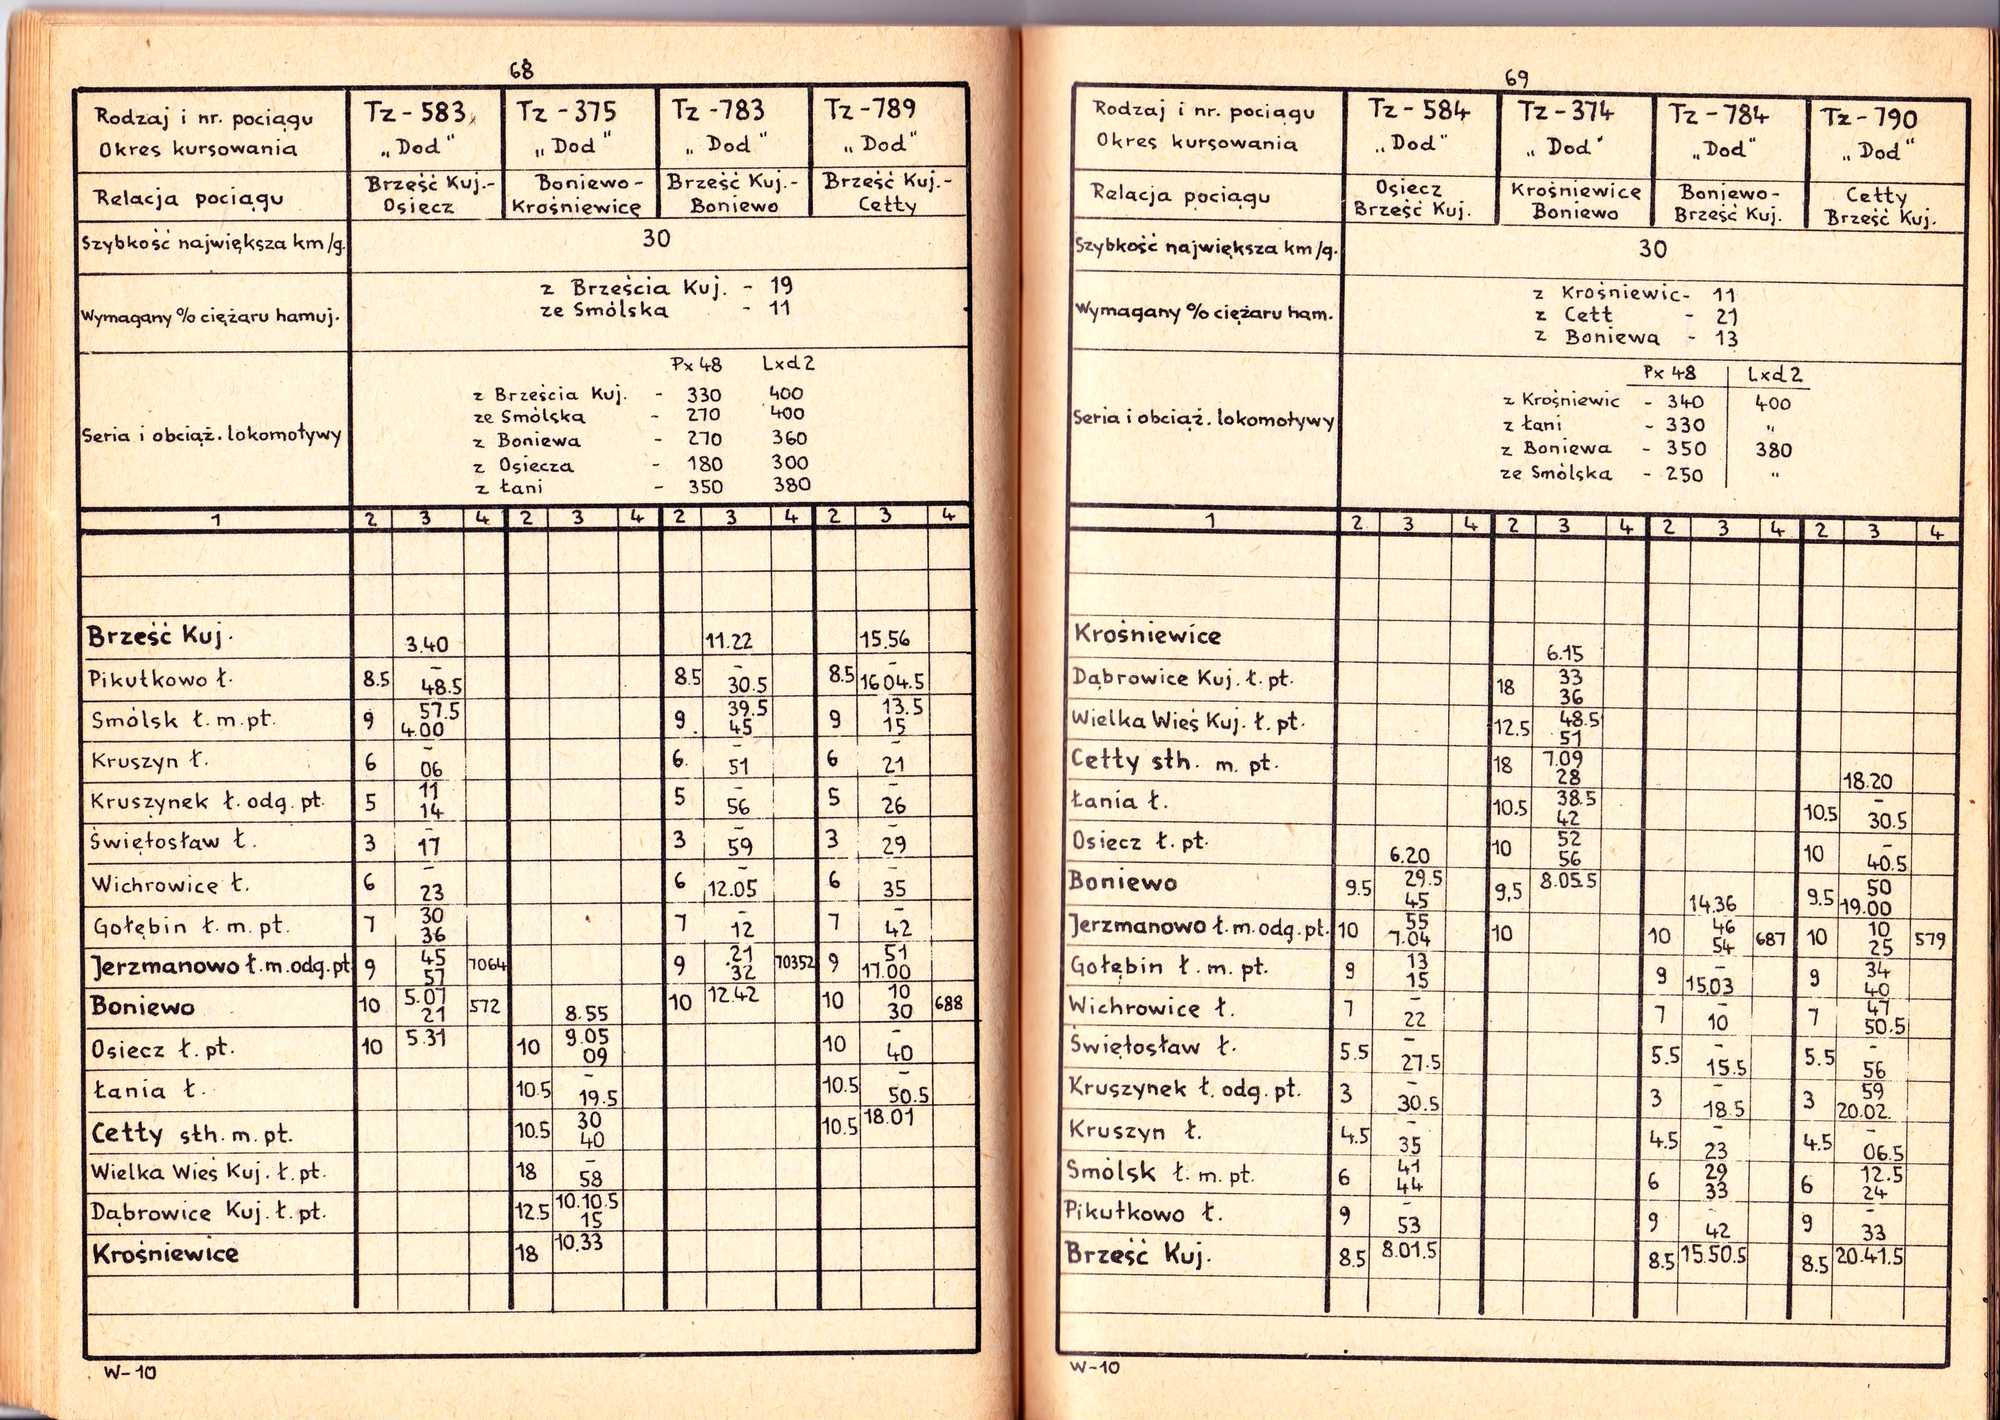 68
Rodzaj i nr. pociągu Tz-583 Tz-375 Tz-783 Tz-789
Okres kursowania „Dod" „Dod" „Dod" „Dod"
Relacja pociągu Brześć Kuj.- Osiecz Boniewo- Krośniewice Brześć Kuj.- Boniewo Brześć Kuj.- Cetty
Szybkość największa km/g. 30
Wymagany % ciężaru hamuj. z Brześcia Kuj. - 19
ze Smólska - 11
Seria i obciąż. lokomotywy Px48 Lxd2
z Brześcia Kuj. - 330 400
ze Smólska - 270 400
z Boniewa - 270 360
z Osiecza - 180 300
z Łani - 350 380
1 2 3 4 2 3 4 2 3 4 2 3 4
Brześć Kuj. 3.40 11.22 15.56
Pikutkowo ł. 8.5 – 48.5 8.5 – 30.5 8.5 – 16 04.5
Smólsk ł. m. pt. 9 57.5 4.00 9 39.5 45 9 13.5 15
Kruszyn ł. 6 – 06 6 – 51 6 – 21
Kruszynek ł. odg. pt. 5 11 14 5 – 56 5 – 26
Świętosław ł. 3 – 17 3 – 59 3 – 29
Wichrowice ł. 6 – 23 6 – 12.05 6 – 35
Gołębin ł. m. pt. 7 30 36 7 – 12 7 – 42
Jerzmanowo ł. m. odg. pt 9 45 57 7064 9 21 32 70352 9 51 17.00
Boniewo 10 5.07 21 572 8.55 10 12.42 10 10 30 688
Osiecz ł. pt. 10 5.31 10 9.05 09 10 – 40
Łania ł. 10.5 – 19.5 10.5 – 50.5
Cetty sth. m. pt. 10.5 30 40 10.5 18.01
Wielka Wieś Kuj. ł. pt. 18 – 58
Dąbrowice Kuj. ł. pt. 12.5 10.10.5 15
Krośniewice 18 10.33
W-10
69
Rodzaj i nr. pociągu Tz-584 Tz-374 Tz-784 Tz-790
Okres kursowania „Dod" „Dod" „Dod" „Dod"
Relacja pociągu Osiecz Brześć Kuj. Krośniewice Boniewo Boniewo- Brześć Kuj. Cetty Brześć Kuj.
Szybkość największa km/g. 30
Wymagany % ciężaru ham. z Krośniewic - 11
z Cett - 21
z Boniewa - 13
Seria i obciąż. lokomotywy Px48 Lxd2
z Krośniewic - 340 400
z Łani - 330 "
z Boniewa - 350 380
ze Smólska - 250 "
1 2 3 4 2 3 4 2 3 4 2 3 4
Krośniewice 6.15
Dąbrowice Kuj. ł. pt. 18 33 36
Wielka Wieś Kuj. ł. pt. 12.5 48.5 51
Cetty sth. m. pt. 18 7.09 28 18.20
Łania ł. 10.5 38.5 42 10.5 – 30.5
Osiecz ł. pt. 6.20 10 52 56 10 – 40.5
Boniewo 9.5 29.5 45 9,5 8.05.5 14.36 9.5 50 19.00
Jerzmanowo ł. m. odg. pt. 10 55 7.04 10 10 46 54 687 10 10 25 579
Gołębin ł. m. pt. 9 13 15 9 – 15.03 9 34 40
Wichrowice ł. 7 – 22 7 – 10 7 47 50.5
Świętosław ł. 5.5 – 27.5 5.5 – 15.5 5.5 – 56
Kruszynek ł. odg. pt. 3 – 30.5 3 – 18.5 3 59 20.02.
Kruszyn ł. 4.5 – 35 4.5 – 23 4.5 – 06.5
Smólsk ł. m. pt. 6 41 44 6 29 33 6 12.5 24
Pikutkowo ł. 9 – 53 9 – 42 9 – 33
Brześć Kuj. 8.5 8.01.5 8.5 15.50.5 8.5 20.41.5
W-10